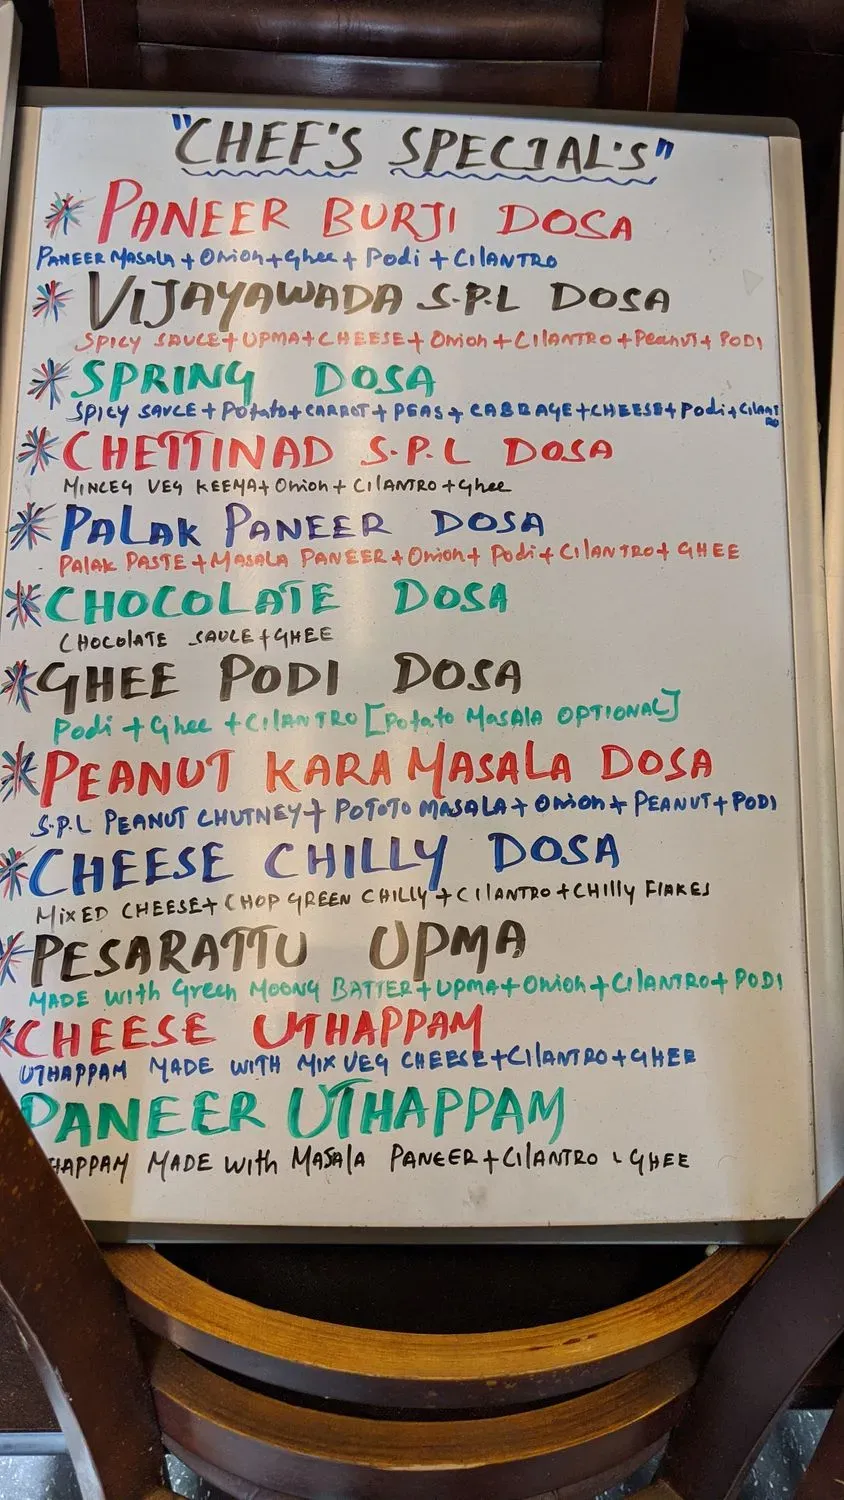 "CHEF'S SPECIAL'S"
PANEER BURJI DOSA
PANEER MASALA + Onion + Ghee + Podi + CILANTRO
VIJAYAWADA S.P.L DOSA
SPICY SAUCE + UPMA + CHEESE + Onion + CILANTRO + Peanut + PODI
SPRING DOSA
SPICY SAUCE + Potato + CARROT + PEAS + CABBAGE + CHEESE + Podi + CILANTRO
CHETTINAD S.P.L DOSA
MINCEG VEG KEEMA + Onion + CILANTRO + Ghee
PALAK PANEER DOSA
PALAK PASTE + MASALA PANEER + Onion + Podi + CILANTRO + GHEE
CHOCOLATE DOSA
CHOCOLATE SAUCE + GHEE
GHEE PODI DOSA
Podi + Ghee + CILANTRO [Potato MASALA OPTIONAL]
PEANUT KARA MASALA DOSA
S.P.L PEANUT CHUTNEY + POTOTO MASALA + Onion + PEANUT + PODI
CHEESE CHILLY DOSA
MIXED CHEESE + CHOP GREEN CHILLY + CILANTRO + CHILLY FLAKES
PESARATTU UPMA
MADE WITH Green MOONG BATTER + UPMA + Onion + CILANTRO + PODI
CHEESE UTHAPPAM
UTHAPPAM MADE WITH MIX VEG CHEESE + CILANTRO + GHEE
PANEER UTHAPPAM
THAPPAM MADE With MASALA PANEER + CILANTRO & GHEE